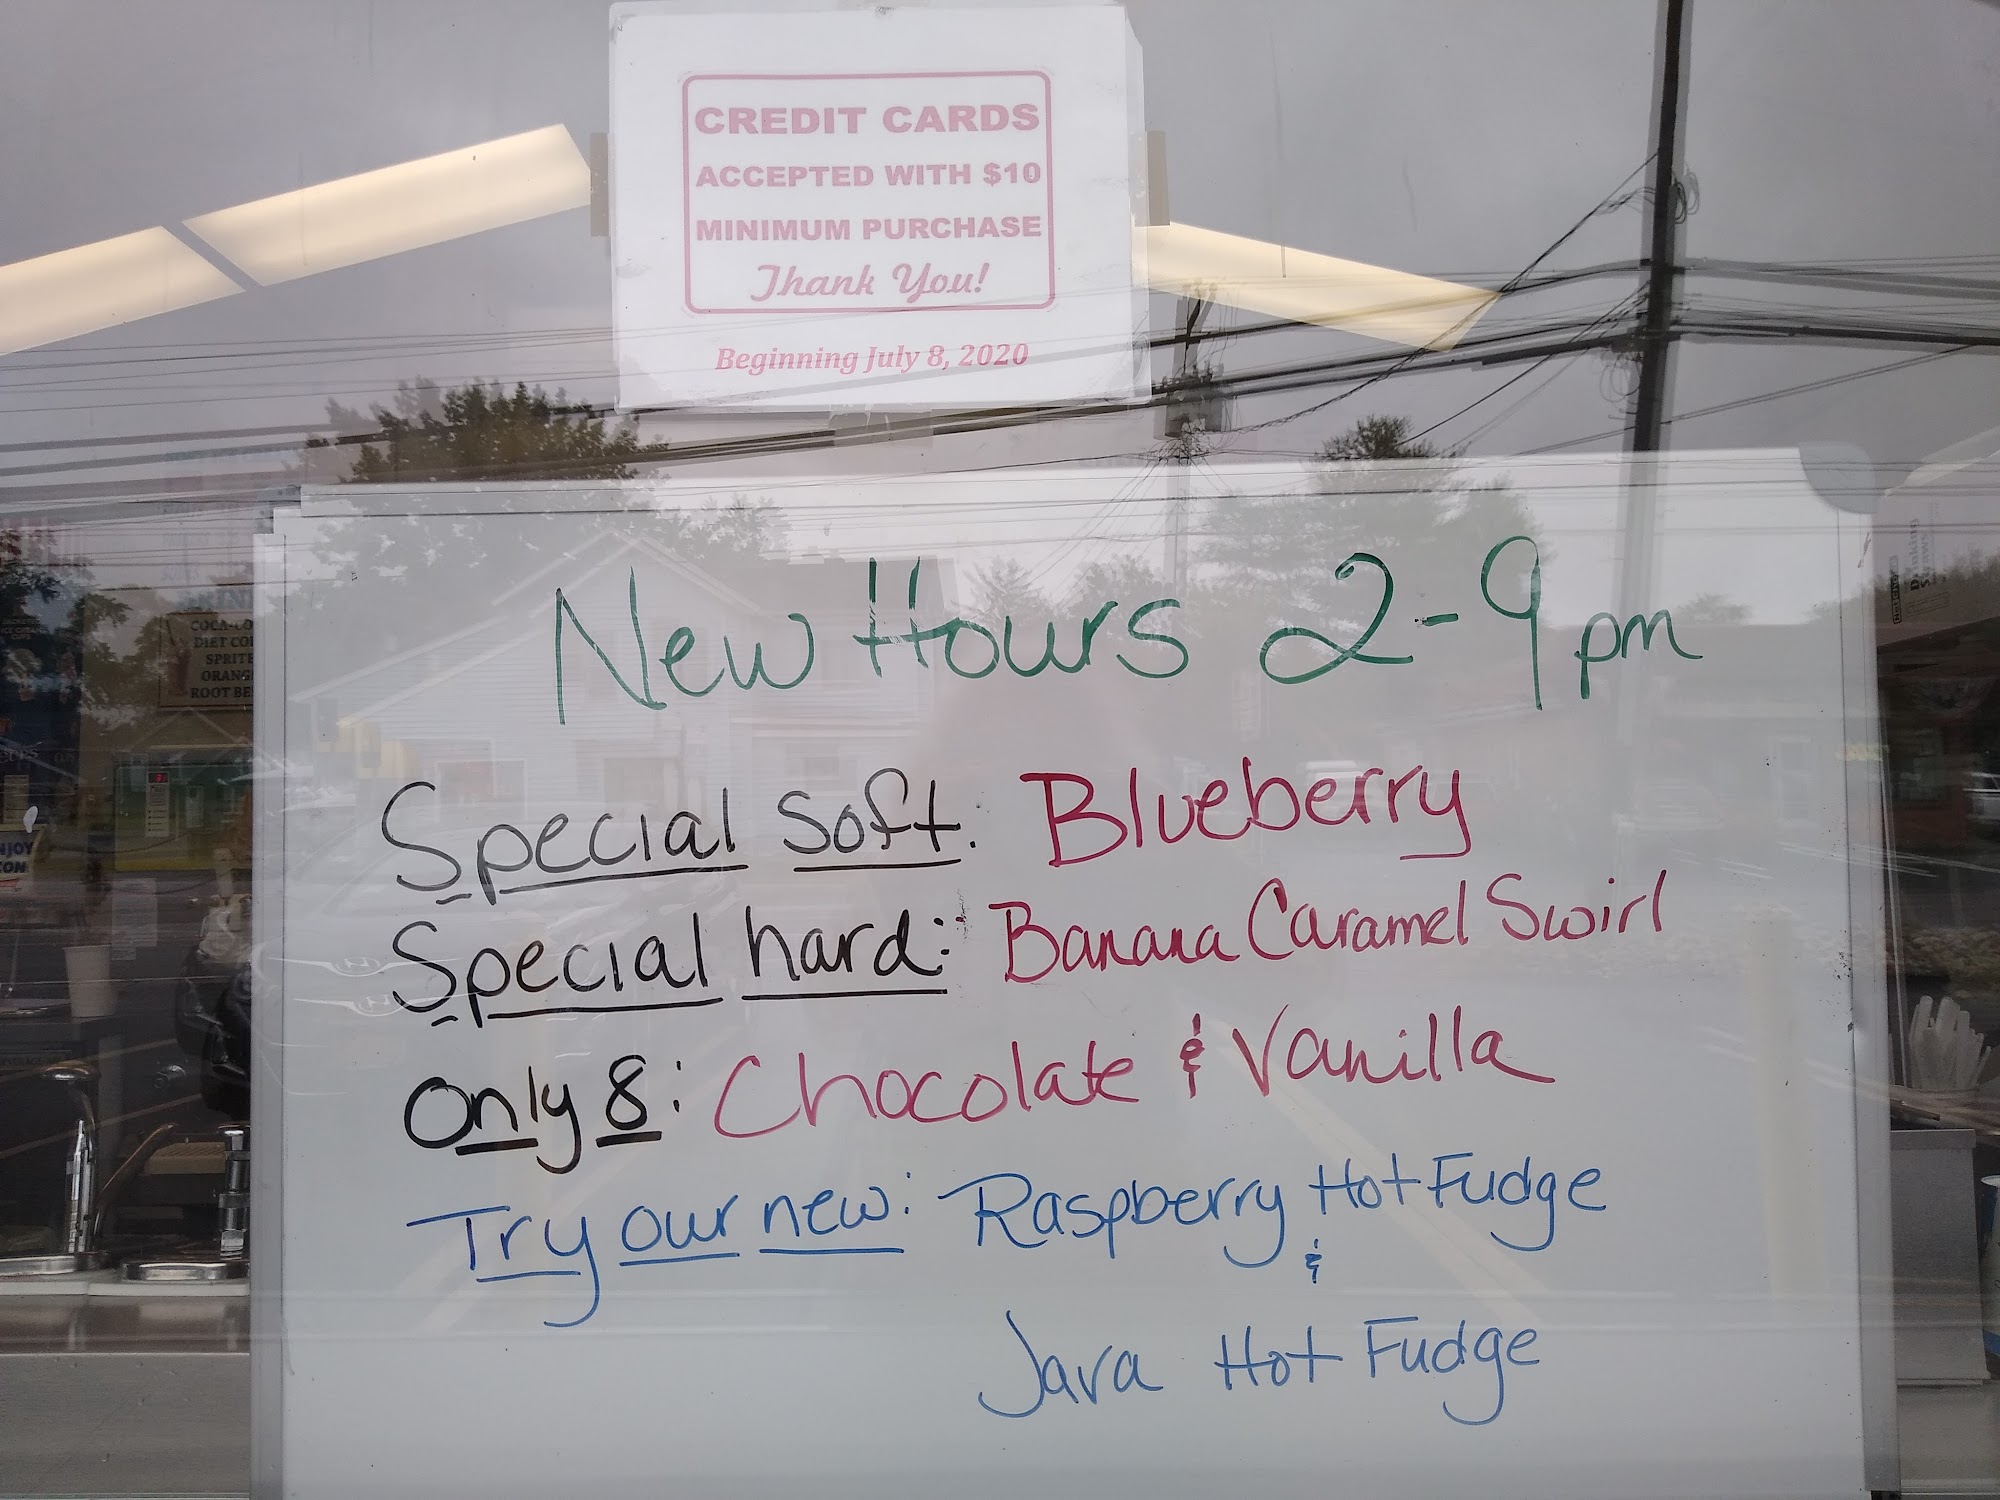 CREDIT CARDS
ACCEPTED WITH $10
MINIMUM PURCHASE
Thank You!
Beginning July 8, 2020
New Hours 2-9pm
Special soft: Blueberry
Special hard: Banana Caramel Swirl
Only 8: Chocolate & Vanilla
Try our new: Raspberry Hot Fudge
&
Java Hot Fudge
COCA-CO
DIET CO
SPRITE
ORANG
ROOT BE
NJOY